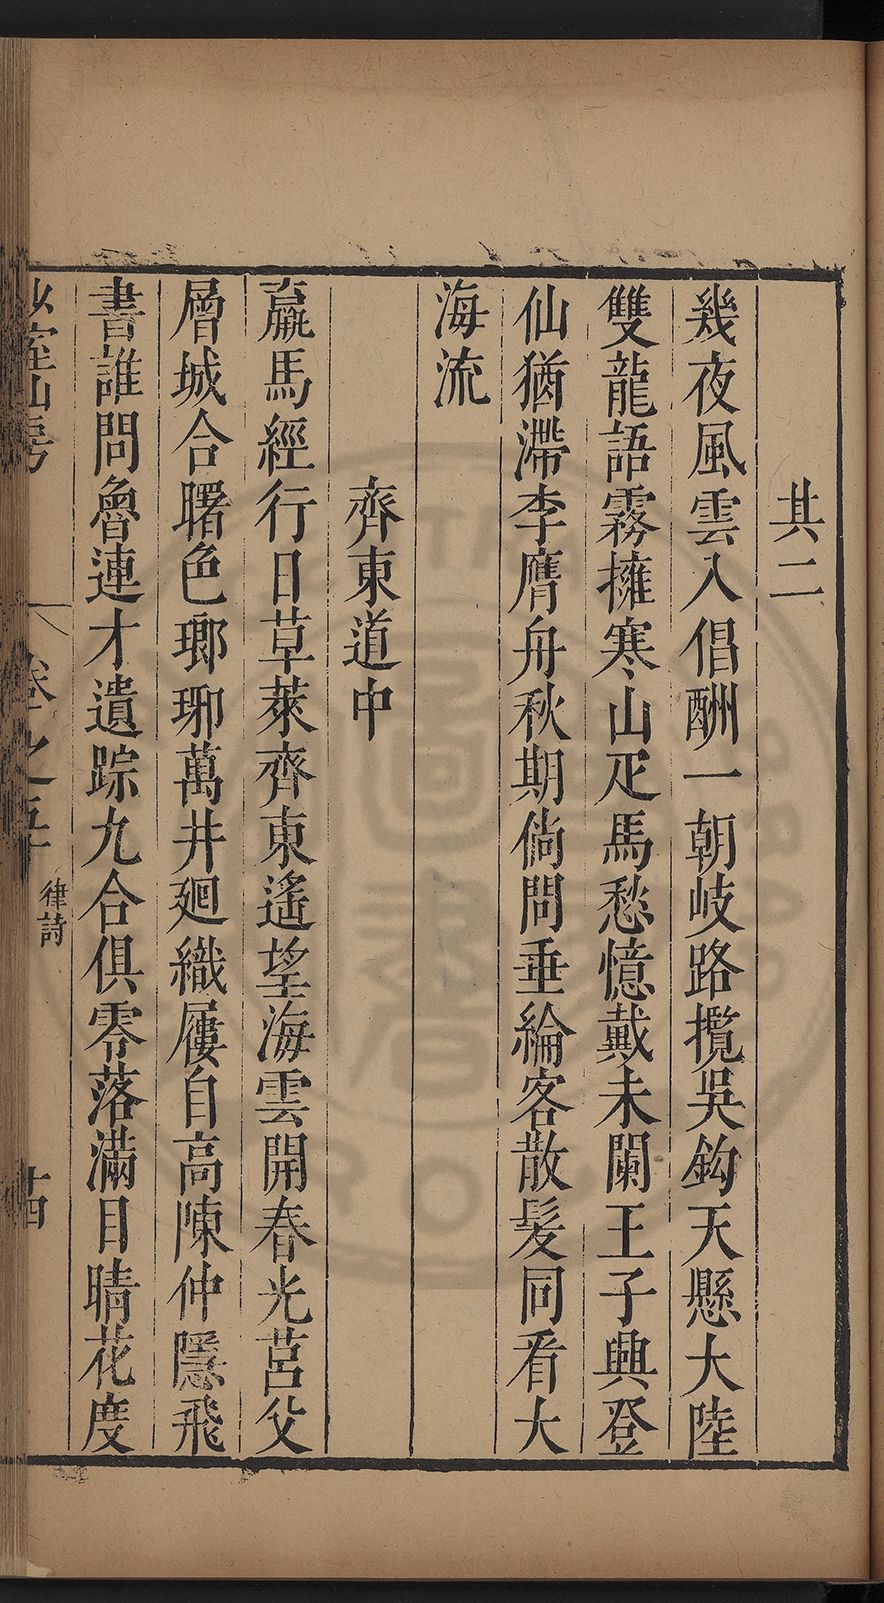 其二
幾夜風雲入倡酬一朝岐路攬吳鈎天懸大陸
雙龍語霧擁寒山疋馬愁憶戴未闌王子興登
仙猶滯李膺舟秋期倘問垂綸客散髮同看大
海流
齊東道中
羸馬經行日草萊齊東遙望海雲開春光莒父
層城合曙色瑯琊萬井廻織屨自高陳仲隱飛
書誰問魯連才遺踪九合俱零落滿目晴花度
室山房
卷之五
律詩
十四